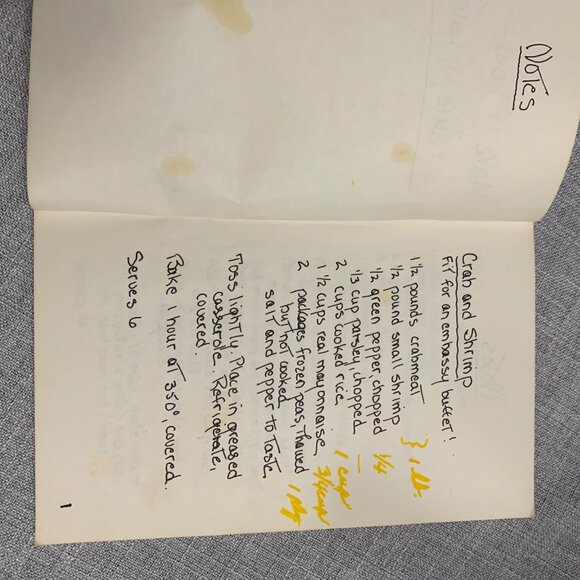 Notes
Crab and Shrimp
Fit for an embassy buffet!
1 1/2 pounds crabmeat
1/2 pound small shrimp } 1 lb.
1/2 green pepper, chopped 1/4
1/3 cup parsley, chopped —
2 cups cooked rice 1 cup
1 1/2 cups real mayonnaise 3/4 cup
2 packages frozen peas, thawed 1 pkg
but not cooked
salt and pepper to taste
Toss lightly. Place in greased
casserole. Refrigerate,
covered.
Bake 1 hour at 350°, covered.
Serves 6
1